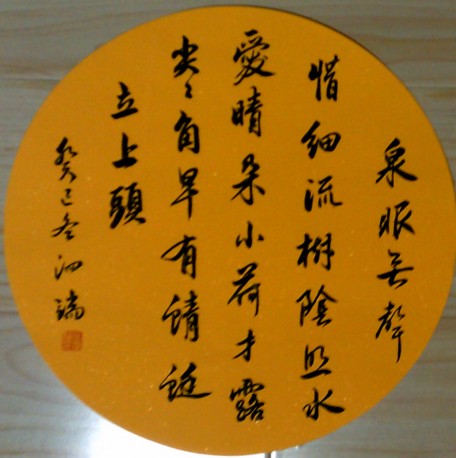 泉眼無聲
惜細流樹陰照水
愛晴柔小荷才露
尖〻角早有蜻蜓
立上頭
癸巳冬泗瑞